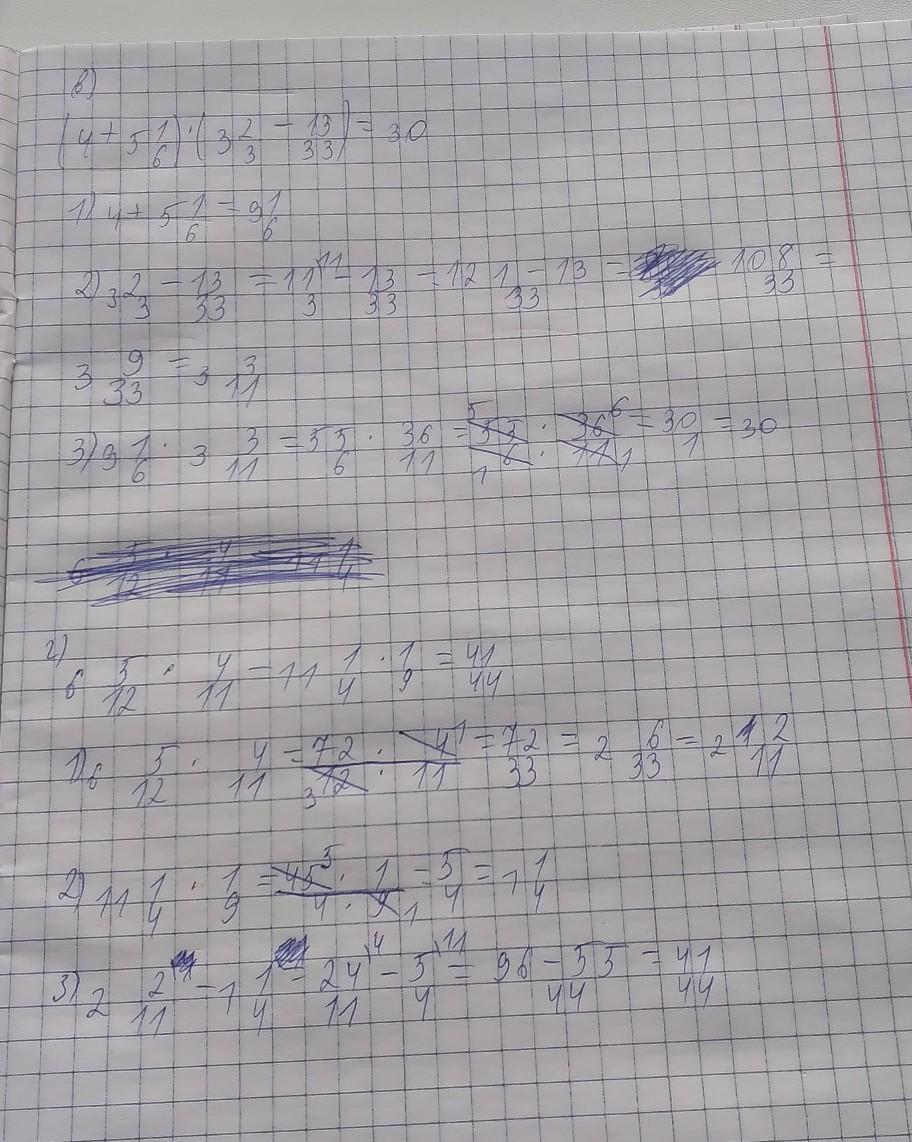 в)
(4 + 5 1/6) · (3 2/3 - 13/33) = 30
1) 4 + 5 1/6 = 9 1/6
2) 3 2/3 - 13/33 = 11/3 \11 - 13/33 = 121 - 13/33 = 108/33 =
3 9/33 = 3 3/11
3) 9 1/6 · 3 3/11 = 55/6 · 36/11 = 55 5 · 36 6 / 1 6 · 11 1 = 30/1 = 30
г)
6 5/12 · 4/11 - 11 1/4 · 1/9 = 41/44
1) 6 5/12 · 4/11 = 72 · 4 1 / 3 12 · 11 = 72/33 = 2 6/33 = 2 2/11
2) 11 1/4 · 1/9 = 45 5 · 1 / 4 · 9 1 = 5/4 = 1 1/4
3) 2 2/11 - 1 1/4 = 24/11 \4 - 5/4 \11 = 96 - 55/44 = 41/44